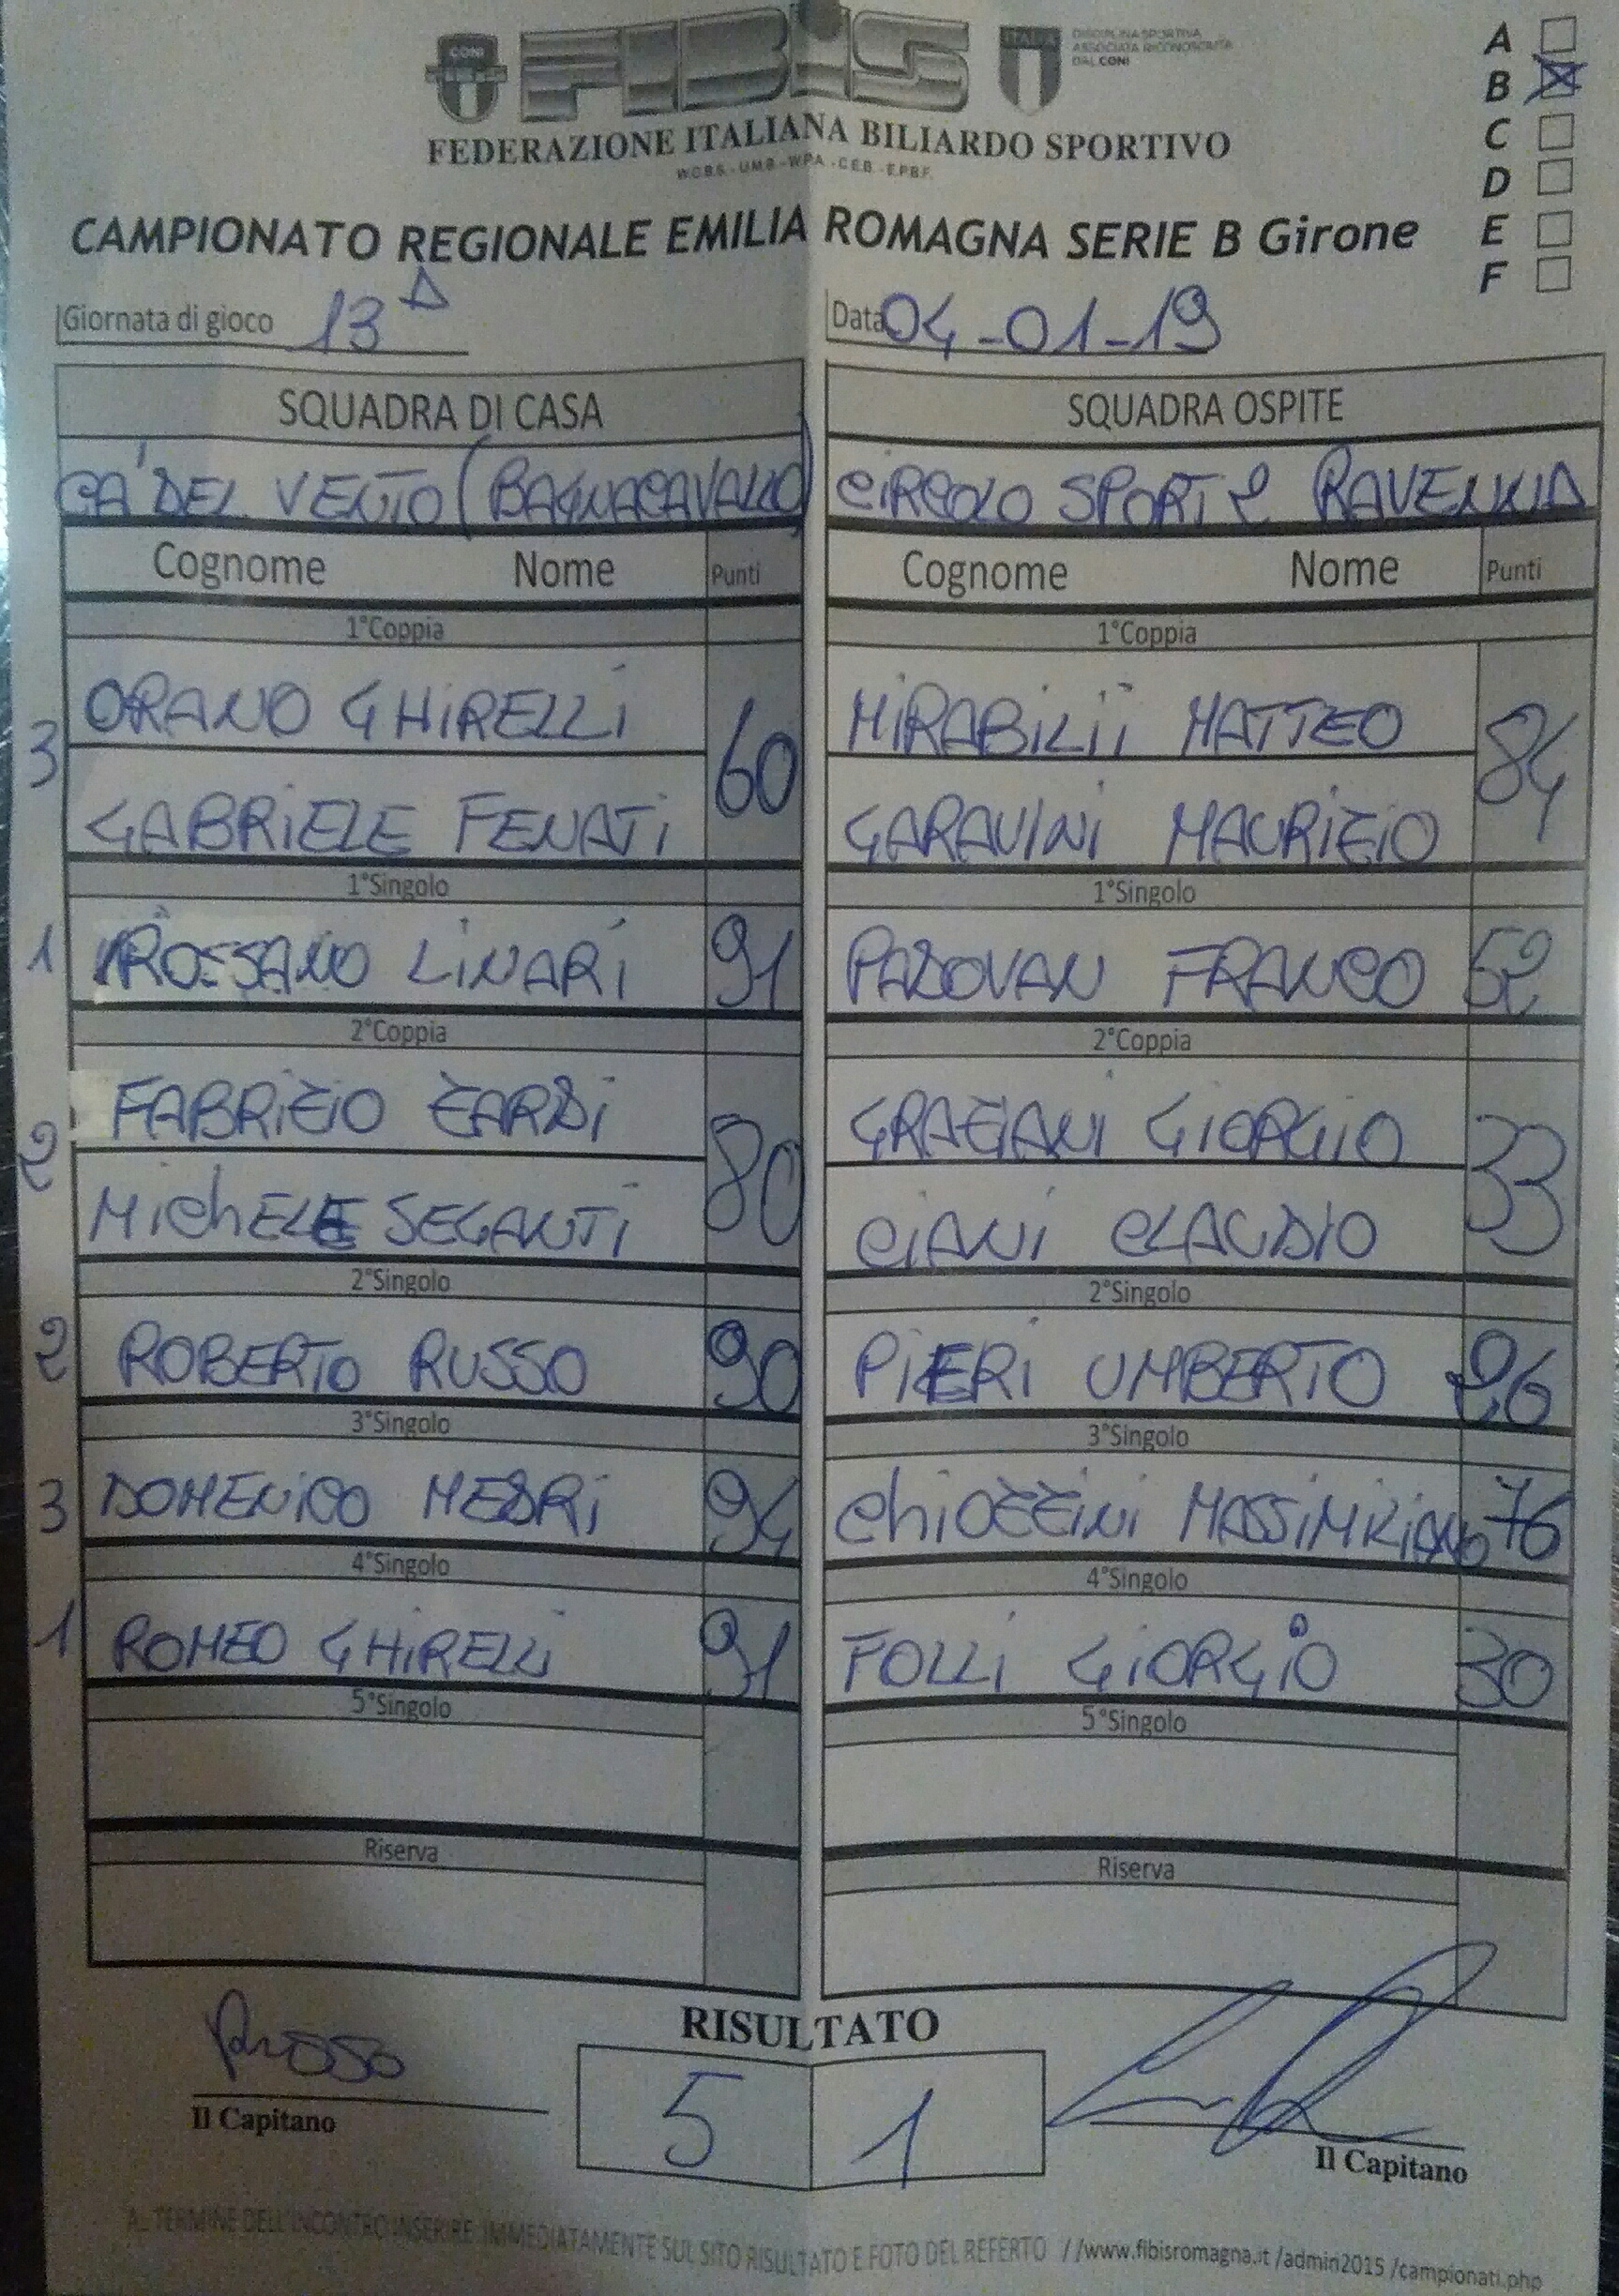 CONI
FIBIS
ITALIA
DISCIPLINA SPORTIVA
ASSOCIATA RICONOSCIUTA
DAL CONI
FEDERAZIONE ITALIANA BILIARDO SPORTIVO
W.C.B.S. - U.M.B. - W.P.A. - C.E.B. - E.P.B.F.
A
B
C
D
E
F
CAMPIONATO REGIONALE EMILIA ROMAGNA SERIE B Girone
Giornata di gioco 13A
Data 04-01-19
SQUADRA DI CASA
SQUADRA OSPITE
CA' DEL VENTO (BAGNACAVALLO)
CIRCOLO SPORT 2 RAVENNA
Cognome Nome Punti
Cognome Nome Punti
1°Coppia
1°Coppia
3 ORANO GHIRELLI 60
GABRIELE FENATI
MIRABILII MATTEO 84
GARAVINI MAURIZIO
1°Singolo
1°Singolo
1 ROSSANO LINARI 91
PADOVAN FRANCO 52
2°Coppia
2°Coppia
2 FABRIZIO ZARDI 80
MICHELE SEGANTI
GRAZIANI GIORGIO 33
CIANI CLAUDIO
2°Singolo
2°Singolo
2 ROBERTO RUSSO 90
PIERI UMBERTO 26
3°Singolo
3°Singolo
3 DOMENICO MEDRI 94
CHIOZZINI MASSIMILIANO 76
4°Singolo
4°Singolo
1 ROMEO GHIRELLI 91
FOLLI GIORGIO 30
5°Singolo
5°Singolo
Riserva
Riserva
RISULTATO
Russo
Il Capitano
5 1
Il Capitano
AL TERMINE DELL'INCONTRO INSERIRE IMMEDIATAMENTE SUL SITO RISULTATO E FOTO DEL REFERTO //www.fibisromagna.it /admin2015 /campionati.php